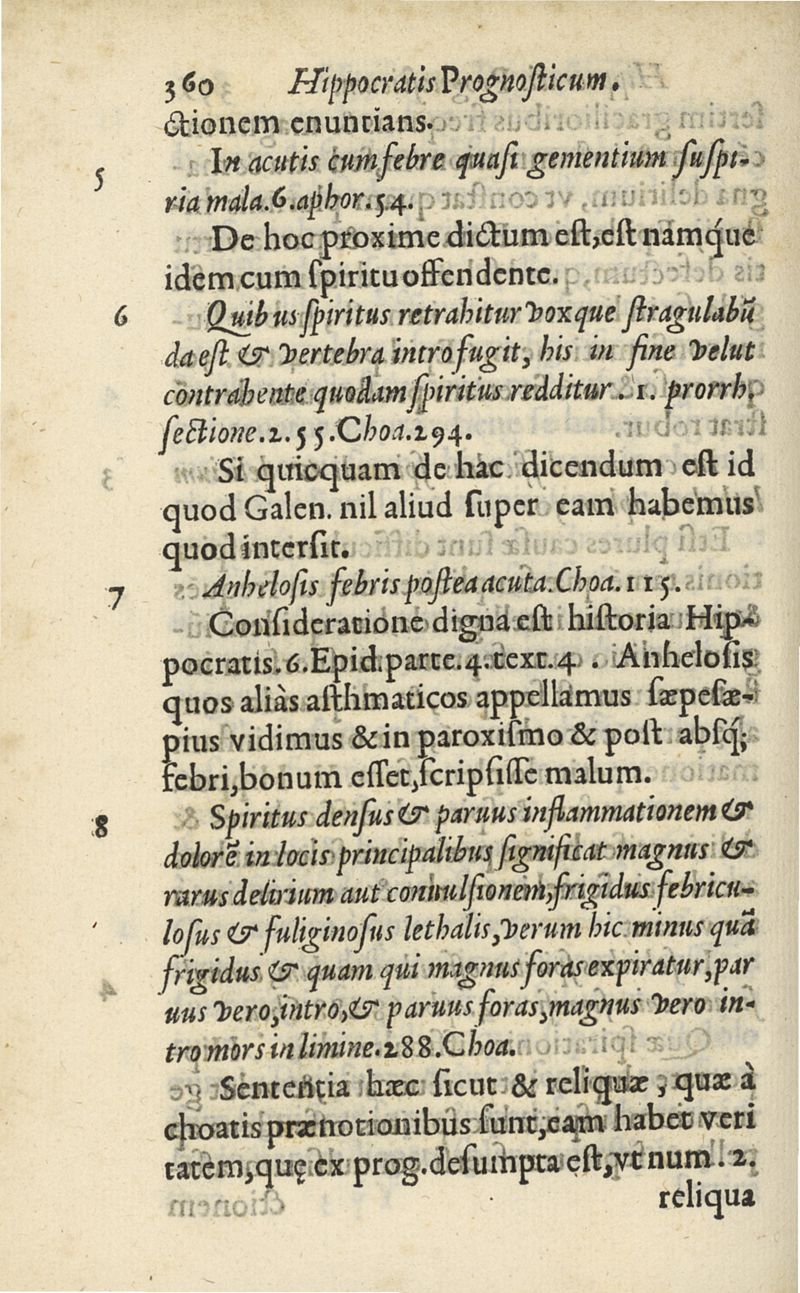 360 Hippocratis Prognosticum.
ctionem enuntians.
5 In acutis cum febre quasi gementium suspi-
ria mala.6.aphor.54.
De hoc proxime dictum est, est namq́ue
idem cum spiritu offendente.
6 Quibus spiritus retrahitur voxque stragulabũ
da est & vertebra intro fugit, his in fine velut
contrahente quodam spiritus redditur. 1. prorrh.
sectione.2.55.Choa.294.
Si quicquam de hac dicendum est id
quod Galen. nil aliud super eam habemus
quod intersit.
7 Anhelosis febris postea acuta.Choa.115.
Consideratione digna est historia Hip-
pocratis.6.Epid.parte.4.text.4. Anhelosis
quos aliàs asthmaticos appellamus sæpesæ-
pius vidimus & in paroxismo & post absq́;
febri, bonum esset, scripsisse malum.
8 Spiritus densus & paruus inflammationem &
dolorẽ in locis principalibus significat magnus &
rarus delirium aut conuulsionem, frigidus febricu-
losus & fuliginosus lethalis, verum hic minus quã
frigidus & quam qui magnus foras expiratur, par
uus vero, intro, & paruus foras, magnus vero in-
tro mors in limine.288.Choa.
Sententia hæc sicut & reliquæ, quæ à
choatis prænotionibus sunt, eam habet veri
tatem, quę ex prog. desumpta est, vt num. 2.
reliqua